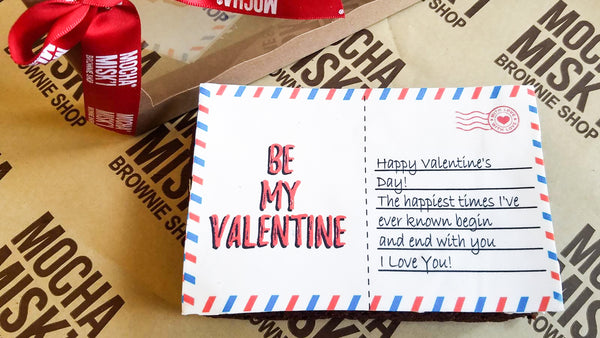 MOCHA
MISK'I
BROWNIE SHOP
MOCHA
MISK'I
BROWNIE SHOP
MOCHA
MISK'I
BROWNIE SHOP
MOCHA
MISK'I
BROWNIE SHOP
MOCHA
MISK'I
BE
MY
VALENTINE
WITH LOVE
WITH LOVE
Happy Valentine's
Day!
The happiest times I've
ever known begin
and end with you
I Love You!